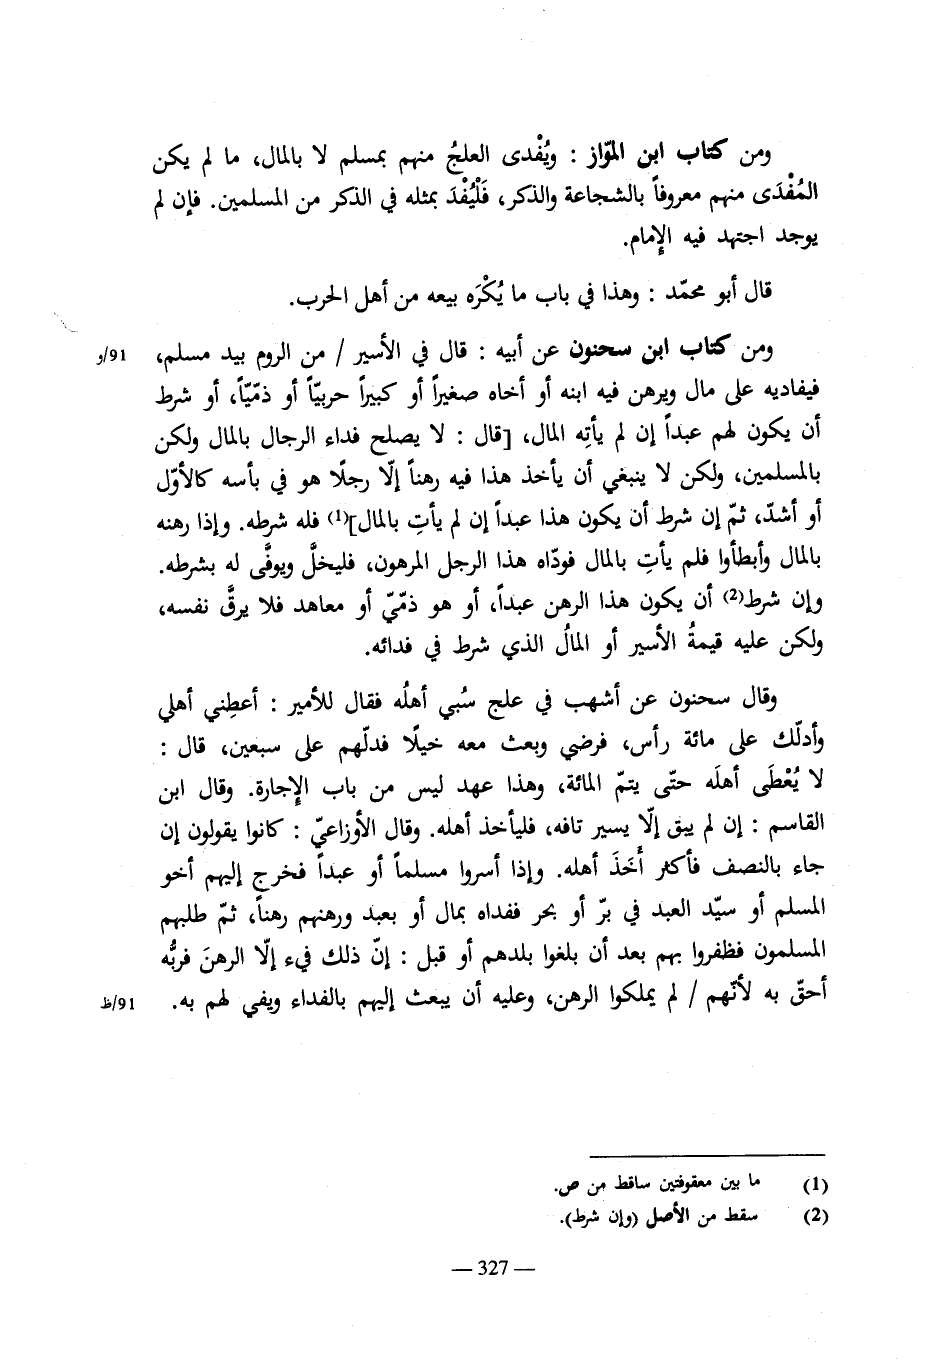 ومن كتاب ابن المّواز : ويُفْدى العلجُ منهم بمسلم لا بالمال، ما لم يكن
المُفْدَى منهم معروفاً بالشجاعة والذكر، فَلْيُفْدَ بمثله في الذكر من المسلمين. فإن لم
يوجد اجتهد فيه الإمام.
قال أبو محمّد : وهذا في باب ما يُكْرَه بيعه من أهل الحرب.
ومن كتاب ابن سحنون عن أبيه : قال في الأسير / من الروم بيد مسلم، 91/و
فيفاديه على مال ويرهن فيه ابنه أو أخاه صغيراً أو كبيراً حربيّاً أو ذمّيّاً، أو شرط
أن يكون لهم عبداً إن لم يأتِه المال، [قال : لا يصلح فداء الرجال بالمال ولكن
بالمسلمين، ولكن لا ينبغي أن يأخذ هذا فيه رهناً إلّا رجلًا هو في بأسه كالأوّل
أو أشدّ، ثمّ إن شرط أن يكون هذا عبداً إن لم يأتِ بالمال](1) فله شرطه. وإذا رهنه
بالمال وأبطأوا فلم يأتِ بالمال فودّاه هذا الرجل المرهون، فليخلَّ ويوفَّى له بشرطه.
وإن شرط(2) أن يكون هذا الرهن عبداً، أو هو ذمّيّ أو معاهد فلا يرقَّ نفسه،
ولكن عليه قيمةُ الأسير أو المالُ الذي شرط في فدائه.
وقال سحنون عن أشهب في علج سُبي أهلُه فقال للأمير : أعطِني أهلي
وأدلّك على مائة رأس، فرضي وبعث معه خيلًا فدلّهم على سبعين، قال :
لا يُعْطَى أهلَه حتّى يتمّ المائة، وهذا عهد ليس من باب الإجارة. وقال ابن
القاسم : إن لم يبق إلّا يسير تافه، فليأخذ أهله. وقال الأوزاعيّ : كانوا يقولون إن
جاء بالنصف فأكثر أَخَذَ أهله. وإذا أسروا مسلماً أو عبداً فخرج إليهم أخو
المسلم أو سيّد العبد في برّ أو بحر ففداه بمال أو بعبد ورهنهم رهناً، ثمّ طلبهم
المسلمون فظفروا بهم بعد أن بلغوا بلدهم أو قبل : إنّ ذلك فيء إلّا الرهنَ فربُّه
أحقّ به لأنّهم / لم يملكوا الرهن، وعليه أن يبعث إليهم بالفداء ويفي لهم به. 91/ظ
(1) ما بين معقوفتين ساقط من ص.
(2) سقط من الأصل (وإن شرط).
— 327 —